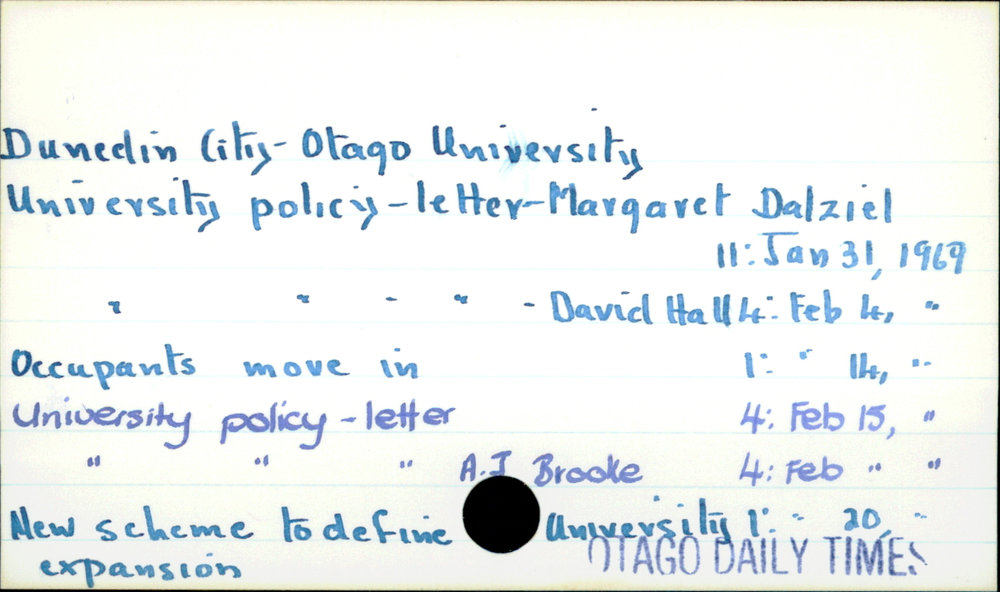 Dunedin City - Otago University
University policy - letter - Margaret Dalziel
11: Jan 31, 1969
" " - " - David Hall 4: Feb 4, "
Occupants move in 1: " 14, "
University policy - letter 4: Feb 15, "
" " " A.J Brooke 4: Feb " "
New scheme to define University 1: " 20, "
expansion
OTAGO DAILY TIMES